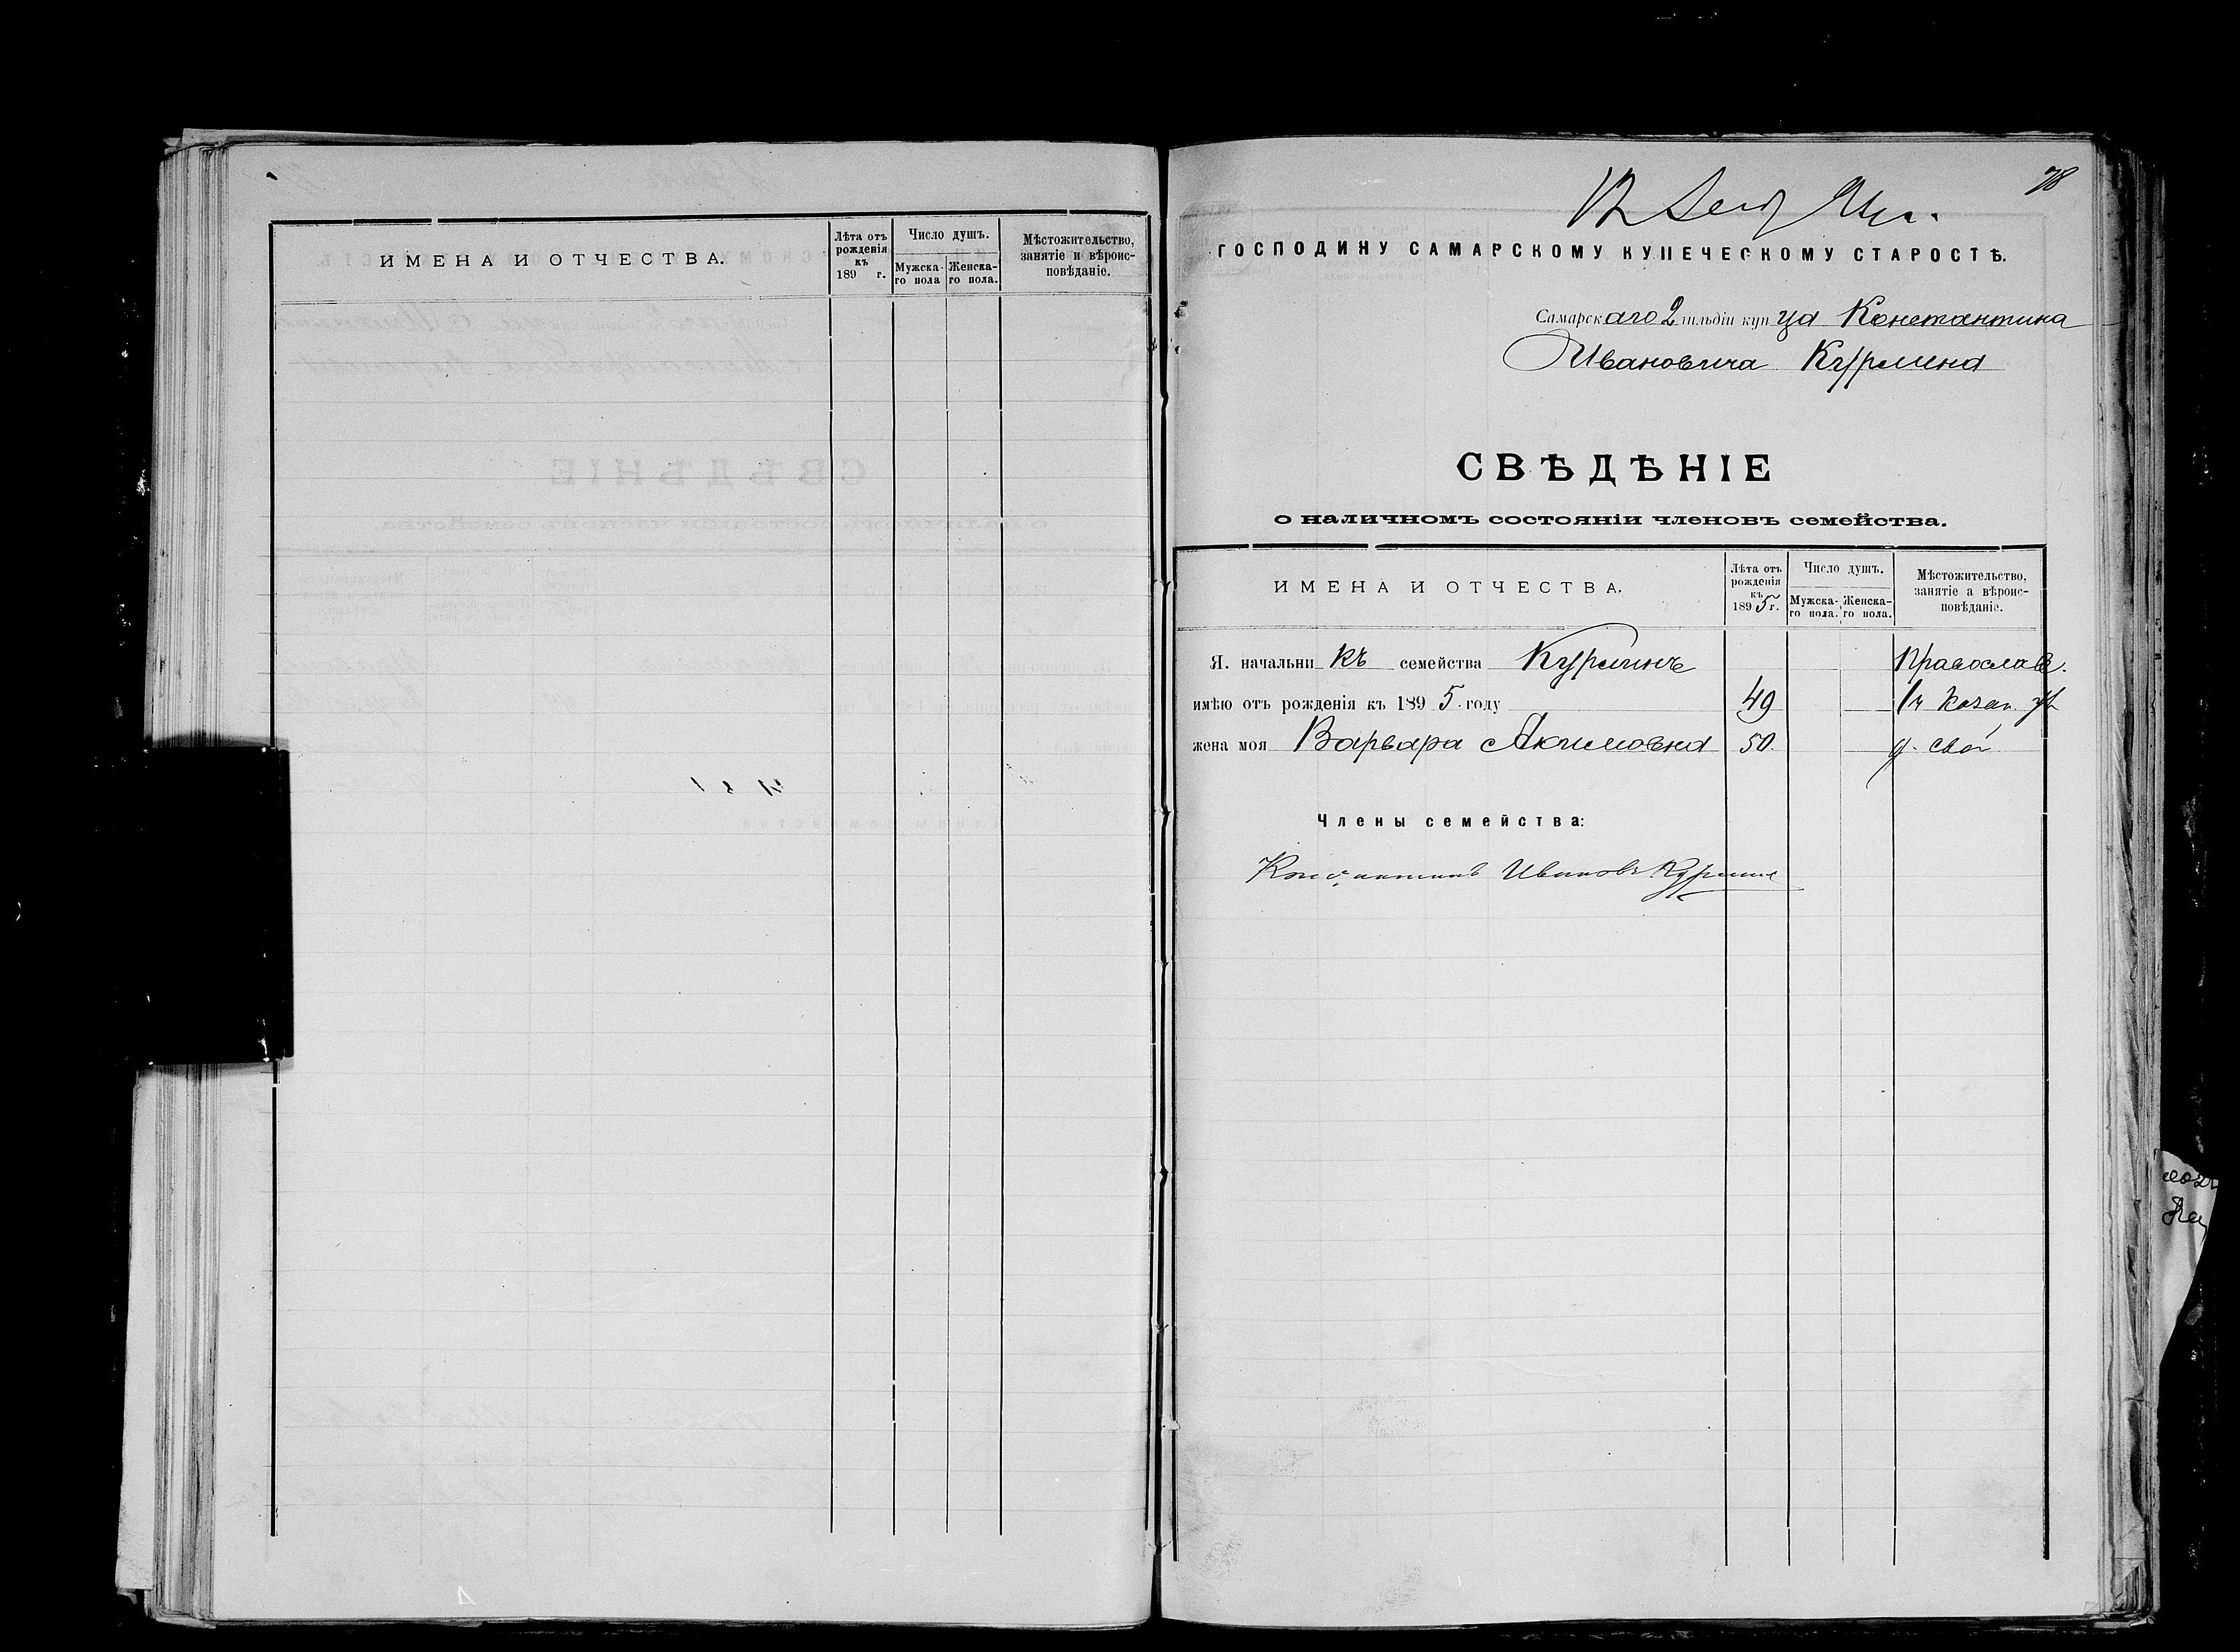 ИМЕНА И ОТЧЕСТВА.
Лѣта отъ рожденія къ 189 г.
Число душъ.
Мужска-го пола
Женска-го пола.
Мѣстожительство, занятіе и вѣроис-повѣданіе.
78
ГОСПОДИНУ САМАРСКОМУ КУПЕЧЕСКОМУ СТАРОСТѢ.
Самарскаго 2 гильдіи купца Константина
Ивановича Курлина
СВѢДѢНІЕ
о наличномъ состояніи членовъ семейства.
ИМЕНА И ОТЧЕСТВА.
Лѣта отъ рожденія къ 1895 г.
Число душъ.
Мужска-го пола.
Женска-го пола.
Мѣстожительство, занятіе а вѣроис-повѣданіе.
Я. начальникъ семейства Курлинъ Православ.
имѣю отъ рожденія къ 1895 году 49
жена моя Варвара Акимовна 50
Члены семейства:
Константинъ Ивановъ Курлинъ